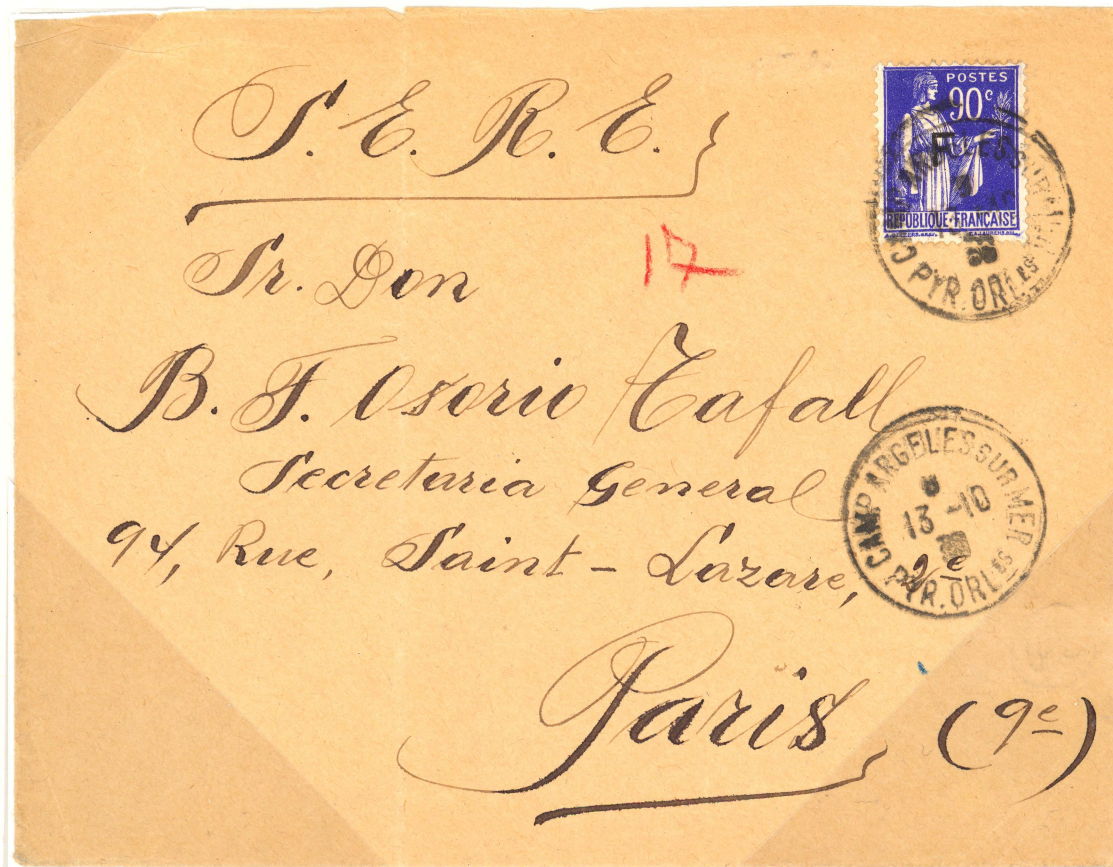 S. E. R. E.
POSTES
90c
F
RÉPUBLIQUE-FRANÇAISE
PYR. ORLES
Sr. Don
17
B. F. Osorio Tafall
Secretaria General
94, Rue, Saint-Lazare, 9e
CAMP ARGELES SUR MER
13-10
PYR. ORLES
Paris
(9e)